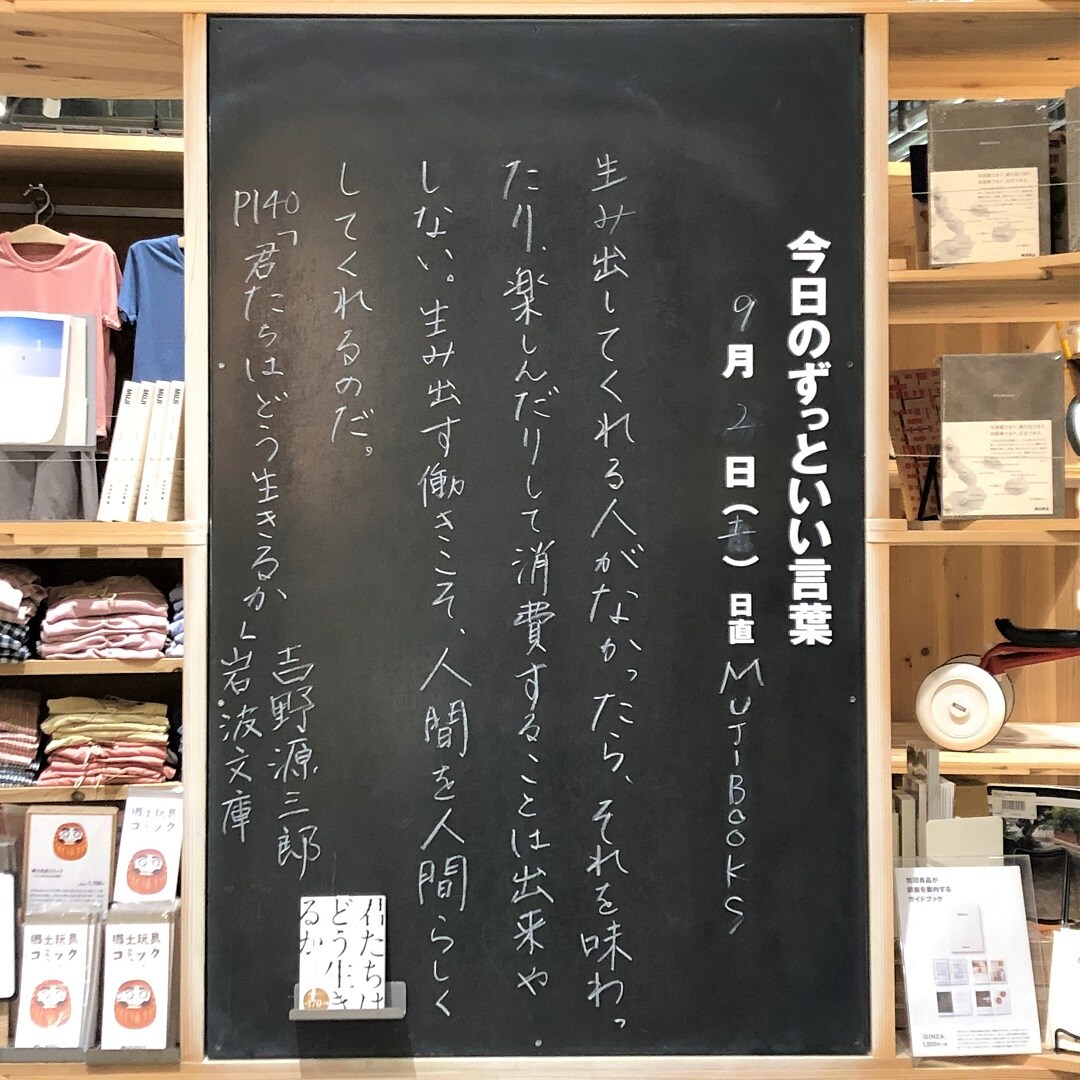 今日のずっといい言葉
9月2日( )日直 MUJIBOOKS
生み出してくれる人がなかったら、それを味わっ
たり、楽しんだりして消費することは出来や
しない。生み出す働きこそ、人間を人間らしく
してくれるのだ。
P140「君たちはどう生きるか」岩波文庫
吉野源三郎
君たちは
どう生き
るか
MUJI
MUJI
MUJI
MUJI
郷土玩具
コミック
郷土玩具
コミック
郷土玩具
コミック
無印良品が
銀座を案内する
ガイドブック
「GINZA」
1,200